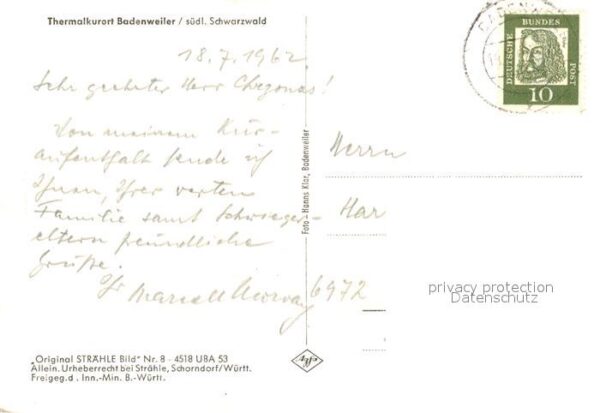 Thermalkurort Badenweiler / südl. Schwarzwald
18.7.1962
Sehr geehrter Herr !
Von meinem Kur-
aufenthalt sende ich
Ihnen, Ihrer werten
Familie samt Schwieger-
eltern freundliche
Grüße.
Ihr Marcell
6972
„Original STRÄHLE Bild" Nr. 8 - 4518 UBA 53
Allein. Urheberrecht bei Strähle, Schorndorf/Württ.
Freigeg.d. Inn.-Min. B.-Württ.
Foto - Hanns Klar, Badenweiler
Agfa
DEUTSCHE BUNDES POST
10
Herrn
Har
privacy protection
Datenschutz